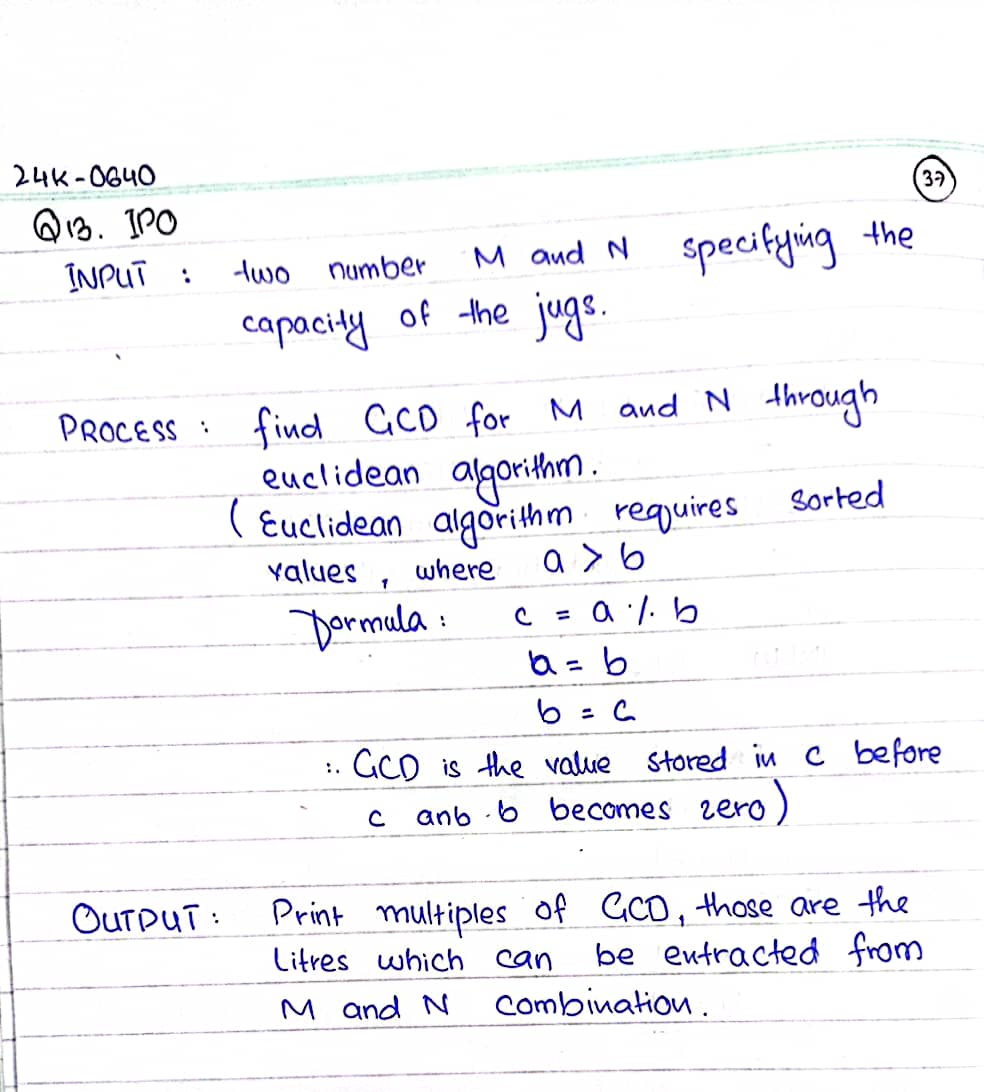 24K-0640
37
Q13. IPO
INPUT : two number M and N specifying the
capacity of the jugs.
PROCESS : find GCD for M and N through
euclidean algorithm.
( Euclidean algorithm requires sorted
values , where a > b
Formula : c = a % b
a = b
b = c
∴ GCD is the value stored in c before
c anb b becomes zero)
OUTPUT : Print multiples of GCD, those are the
Litres which can be extracted from
M and N combination.